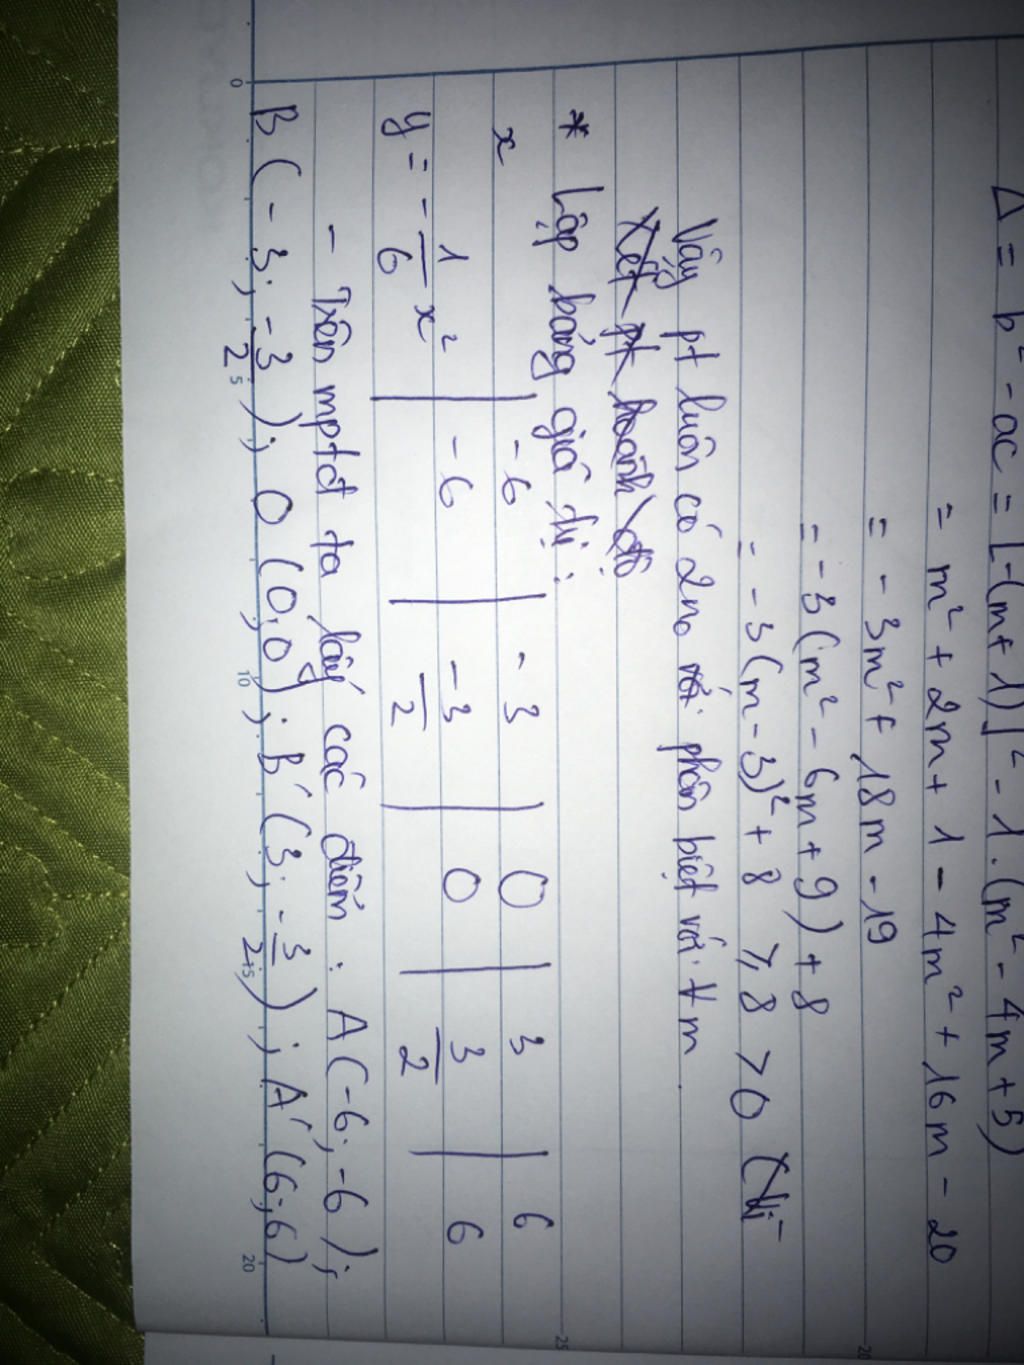 Δ = b² - ac = [-(m+1)]² - 1.(m² - 4m + 5)
= m² + 2m + 1 - 4m² + 16m - 20
= - 3m² + 18m - 19
= - 3(m² - 6m + 9) + 8
= - 3(m - 3)² + 8 ⩾ 8 > 0 (Vì
Vậy pt luôn có 2 n₀ phân biệt với ∀ m.
Xét pt hoành độ
* Lập bảng giá trị:
x | -6 | -3 | 0 | 3 | 6
y = -1/6 x² | -6 | -3/2 | 0 | 3/2 | 6
- Trên mptđ ta lấy các điểm: A(-6; -6);
B(-3; -3/2); O(0;0); B'(3; -3/2); A'(6;6)
0
5
10
20
20
25